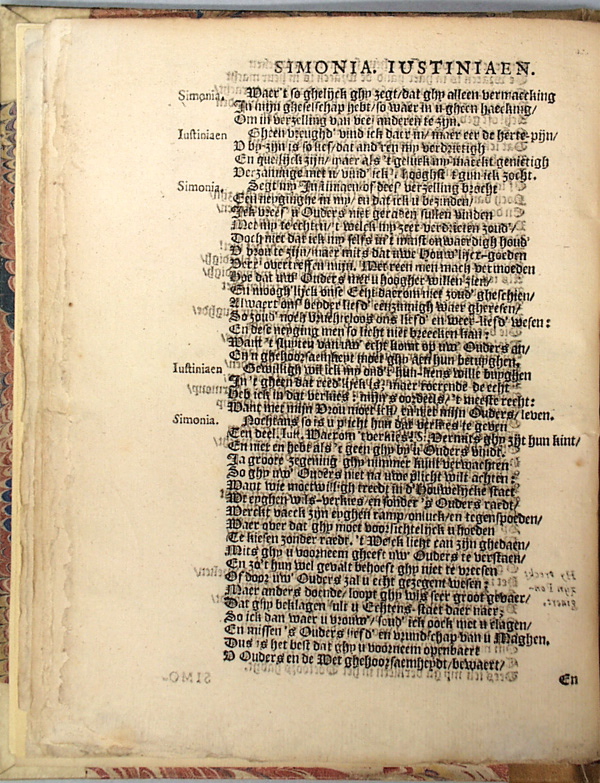 SIMONIA. IUSTINIAEN.
Simonia. Waer't so ghelijck ghy zegt/dat ghy alleen vermaecking
In mijn gheselschap hebt/so waer in u gheen haecking/
Om in verzelling van anderen te zijn.
Iustiniaen Gheen vreughd' vind ick daer in/ maer eer de herte-pijn/
V by zijn is so lief/dat and'ren my verdrietigh
En quelijck zijn/ maer als 't geluck my maeckt genietigh
Verzaminge met u/ vind' ick 't hooghst 't gun ick zocht.
Simonia. Segt my Justiniaen/of dees' verzelling brocht
Een neyginghe in my/ en dat ick u bezinden/
Ick vrees' u Ouders niet geraden sullen vinden
Met my te echten/ 't welck my zeer verdrieten zoud'/
Doch niet dat ick my selfs in 't minst onwaerdigh houd'
V vrou te zijn/ maer mits dat uwe Houw'lijcx-goeden
Verr' overtreffen mijn. Met reen men mach vermoeden
Hoe dat uw' Ouders met u hoogher willen zien/
En moogh'lijck ons' Echt daerom niet zoud' gheschien/
Alwaert ons' beyder liefd' eenzinnigh waer gheresen/
So zoud' noch vruchteloos ons liefd' en weer-liefd' wesen:
En dese neyging men so licht niet breecken kan:
Want 't sluyten van uw' echt komt op uw' Ouders an/
En u ghehoorsaemheyt moet ghy aen hun betuyghen.
Iustiniaen Gewilligh wil ick my ond'r hun-liens wille buyghen
In 't gheen dat reed'lijck is; maer roerende de echt
Heb ick in dat verkies; mijn's oordeels/ 't meeste recht:
Want met mijn Vrou moet ick/ en niet mijn Ouders/ leven.
Simonia. Nochtans so is u plicht hun dat verkies te geven
Ten deel. Iust. Waerom 't verkies? Si. Vermits ghy zijt hun kint/
En niet en hebt als 't geen ghy by u Ouders vindt.
Ja groote zegening ghy nimmer kunt verwachten
So ghy uw' Ouders niet na uwe plicht wilt achten:
Want wie moetwilligh treedt in d'Houwelijcke staet
Wt eyghen wijs-verkies en sonder 's Ouders raedt/
Verckt vaeck zijn eyghen ramp/onluck/en tegenspoeden/
Waer over dat ghy moet voorsichtelijck u hoeden
Te kiesen zonder raedt. 't Welck licht can zijn ghedaen/
Mits ghy u voorneem gheeft uw' Ouders te verstaen/
En zo't hun wel gevalt behoeft ghy niet te vreesen
Of door uw' Ouders zal u echt gezegent wesen:
Maer anders doende/ loopt ghy wijs seer groot gevaer/
Dat ghy beklagen sult u Echtens-staet daer naer;
So ick dan waer u vrouw'/ soud' ick oock met u clagen/
En missen 's Ouders liefd' en vrundschap van u Maghen.
Dus is het best dat ghy u voorneem openbaert
V Ouders en de Wet ghehoorsaemheydt/bewaert/
En